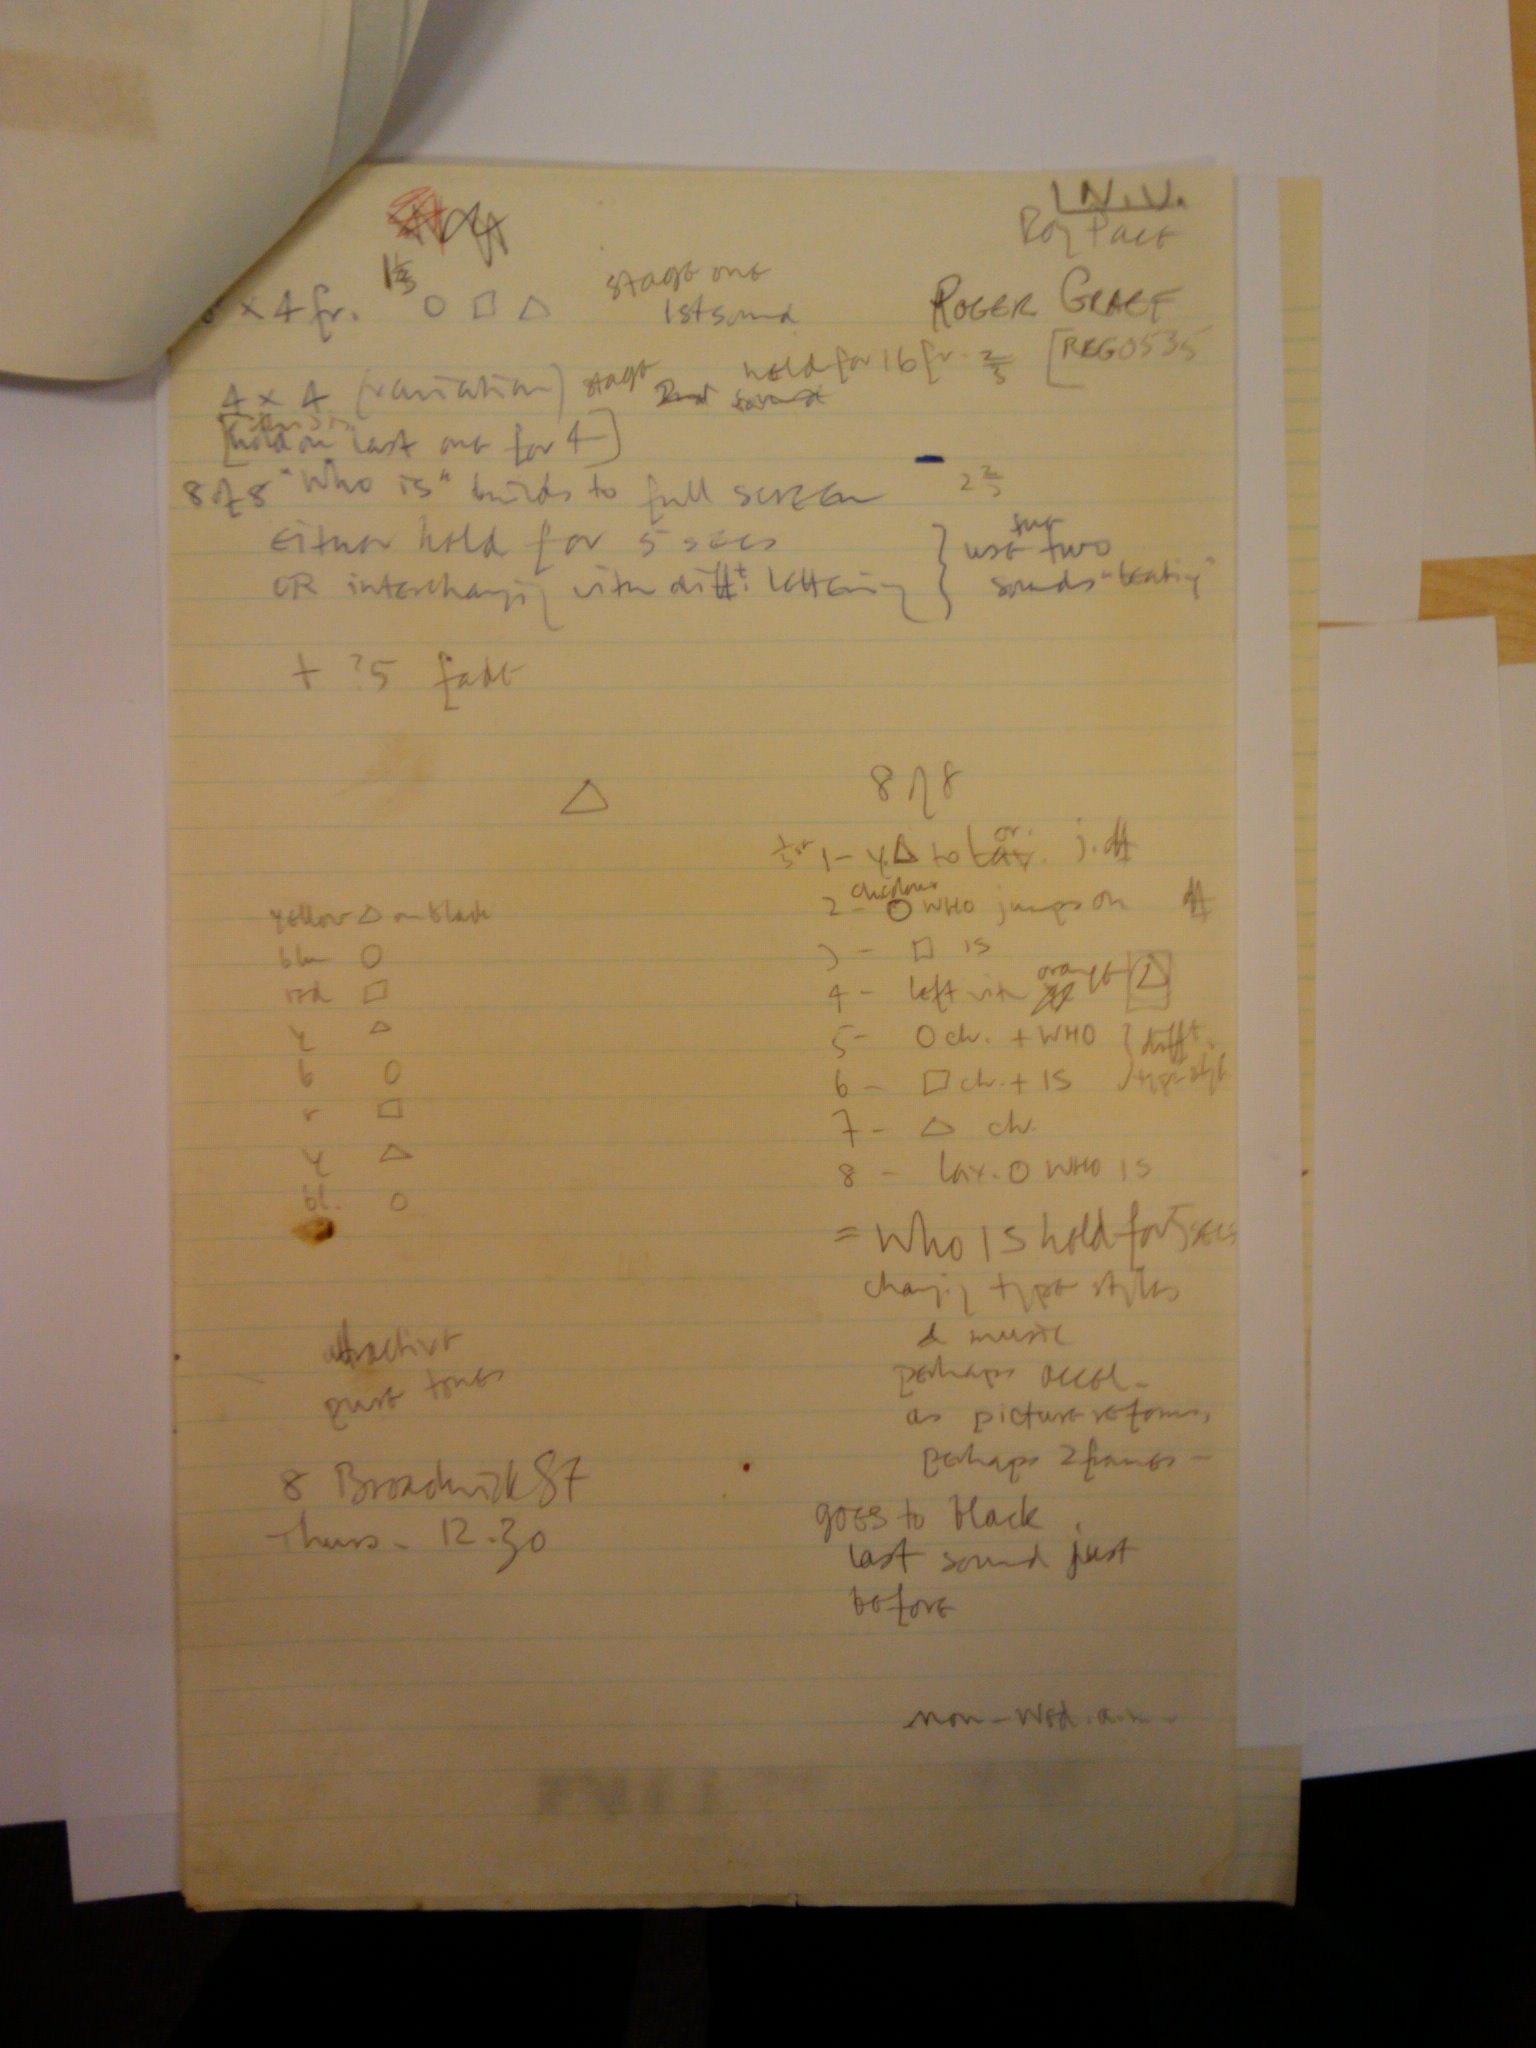 I.N.V.
Roy Pace
× 4 fr. 1⅓ stage one
1st sound
ROGER GRAEF
[REG 0535
4 × 4 (variation) stage hold for 16 fr. ⅔
[hold on last one for 4]
8 of 8 "Who is" builds to full screen 2⅔
either hold for 5 secs
OR interchanging with diff't lettering
use two
sounds "beating"
+ ?5 fade
8 of 8
1 - y. △ to or.
2 - ○ WHO jumps on
3 - □ IS
4 - left with orange △
5 - ○ ch. + WHO
6 - □ ch. + IS
diff't.
type style
7 - △ ch.
8 - ○ WHO IS
= WHO IS hold for 5 secs
changing type styles
& music
perhaps accel.
as picture reforms,
perhaps 2 frames -
goes to black
last sound just
before
yellow △ on black
blu ○
red □
y △
b ○
r □
y △
bl. ○
attractive
pure tones
8 Broadwick ST
Thurs - 12.30
mon - Wed. a.m.